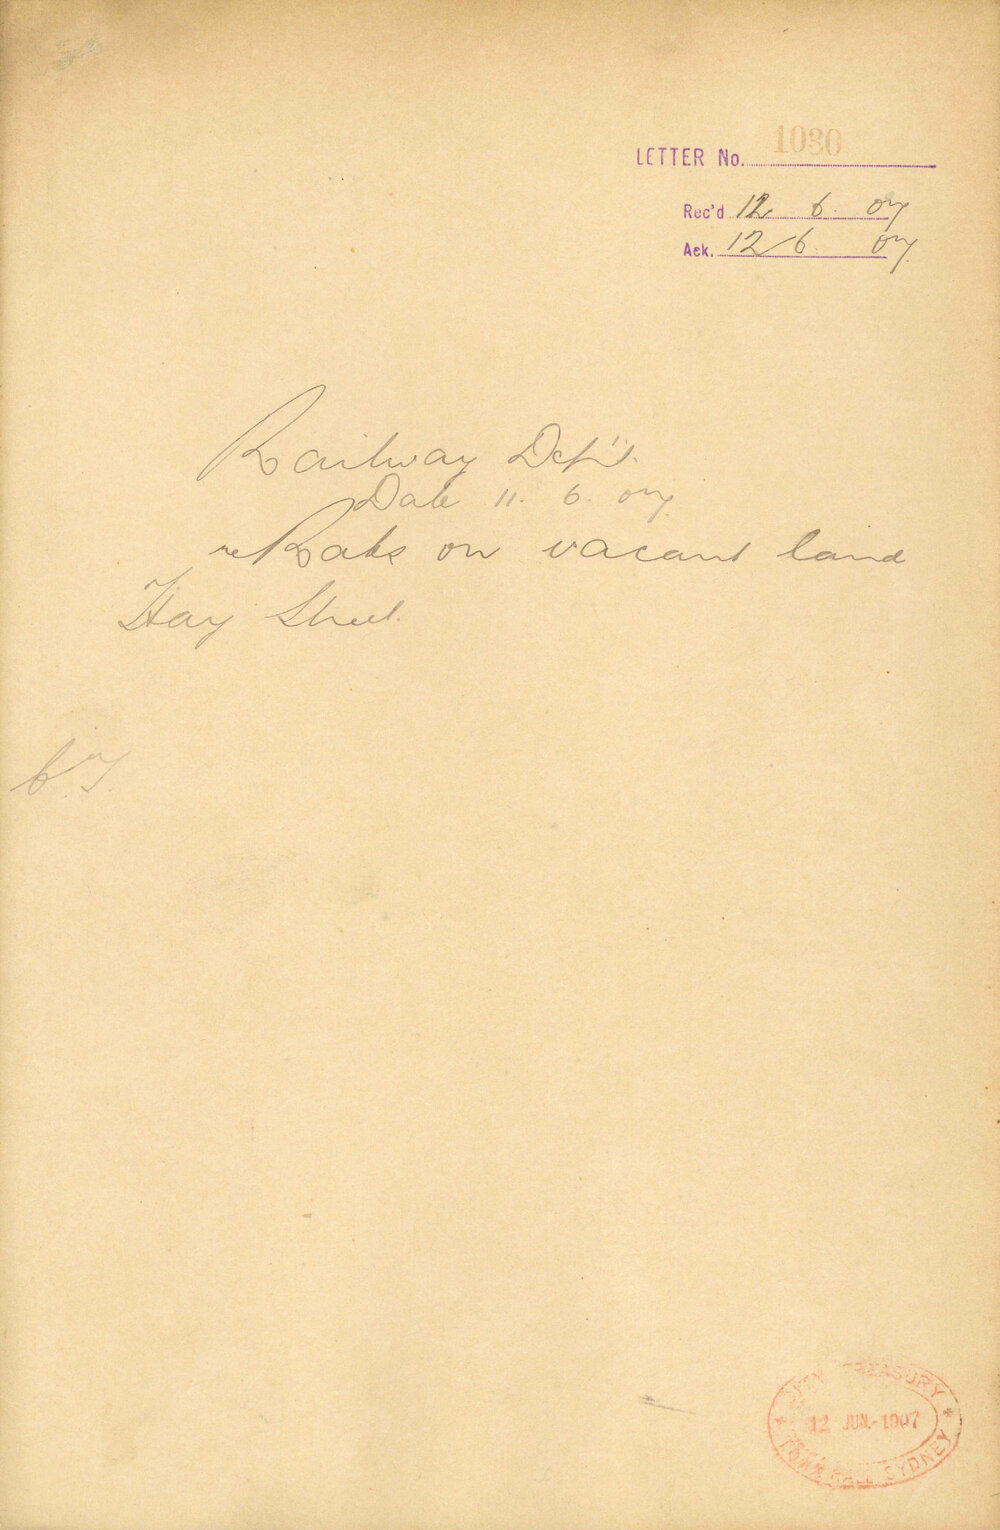 LETTER No. 1030
Rec'd 12 6 07
Ack. 12 6 07
Railway Dep't.
Date 11. 6. 07
re Rates on vacant land
Hay Street.
C.T.
CITY TREASURY
12 JUN.-1907
TOWN HALL SYDNEY